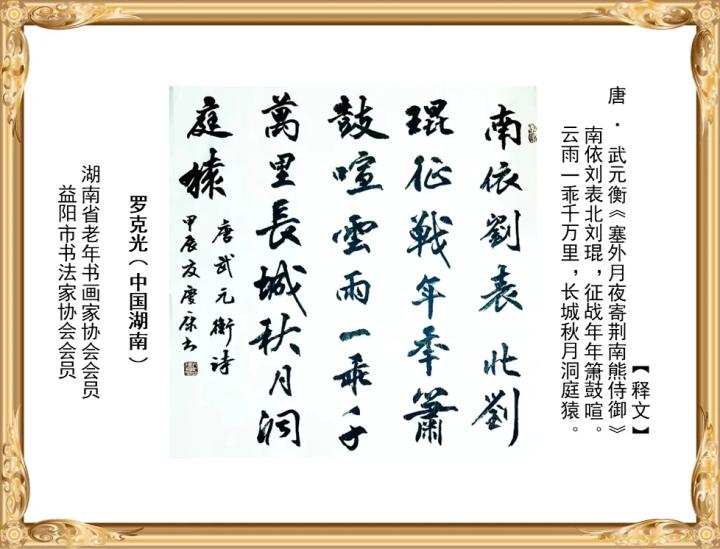 【释文】
唐·武元衡《塞外月夜寄荆南熊侍御》
南依刘表北刘琨，征战年年箫鼓喧。
云雨一乖千万里，长城秋月洞庭猿。
南依劉表北劉
琨征戰年秊簫
鼓喧雲雨一乖千
萬里長城秋月洞
庭猿
唐武元衡詩
甲辰
罗克光（中国湖南）
湖南省老年书画家协会会员
益阳市书法家协会会员